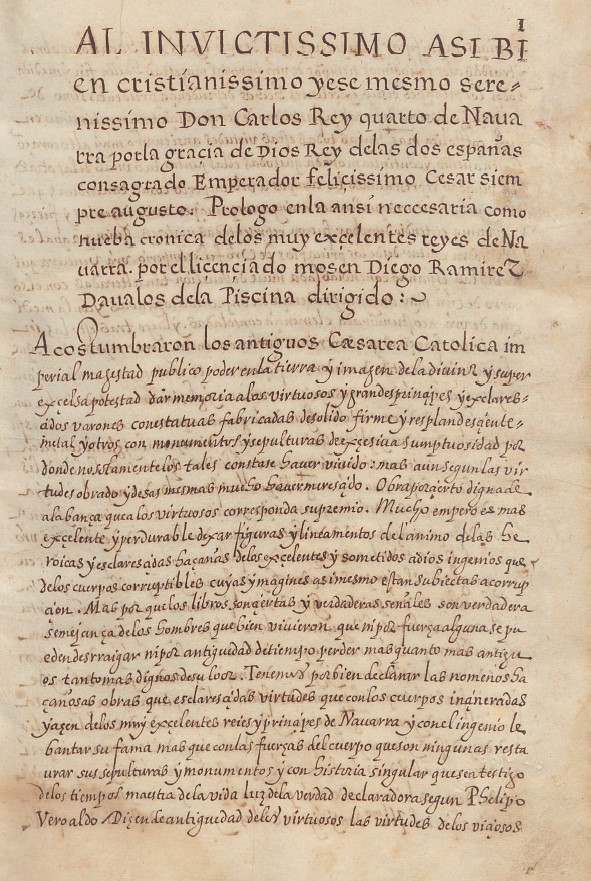 1
AL INVICTISSIMO ASI BI
en cristianissimo y ese mesmo sere-
nissimo Don Carlos Rey quarto de Nava
rra por la gracia de Dios Rey delas dos españas
consagrado Emperador felicissimo Cesar siem
pre augusto. Prologo enla ansi neccesaria como
nueba cronica delos muy exçelentes reyes de Na
uarra. por el licençiado mosen Diego Ramirez
Daualos dela Piscina dirigido:~
Acostumbraron los antiguos Cæsarea Catolica im
perial magestad publico poder enla tierra y imagen dela diuina y super
exçelsa potestad dar memoria alos virtuosos y grandes prinçipes y esclares-
çidos varones con estatuas fabricadas de solido firme y resplandesçiente
metal y otros con monumentos y sepulturas de exçesiua sumptuosidad por
donde no solamente los tales constase hauer viuido: mas aun segun las vir
tudes obrado y desas mesmas mucho hauer meresçido. Obra por çierto digna de
alabança que a los virtuosos corresponda su premio. Mucho empero es mas
exçelente y perdurable dexar figuras y lineamentos del animo delas he
roicas y esclaresçidas haçañas delos exçelentes y sometidos a dios ingenios que
delos cuerpos corruptibles cuyas ymagines asi mesmo estan subiectas a corrup
çion. Mas por que los libros son çiertas y verdaderas señales son verdadera
semejança delos hombres que bien vivieron que ni por fuerça alguna se pu
eden desrraigar ni por antiguidad de tiempo perder mas quanto mas antigu
os tanto mas dignos de su loor. Tenemos por bien declarar las no menos ha
çañosas obras que esclaresçidas virtudes que con los cuerpos inçineradas
yaçen delos muy exçelentes reies y prinçipes de Nauarra y con el ingenio le
bantar su fama mas que con las fuerças del cuerpo que son ningunas resta
urar sus sepulturas y monumentos y con historia singular que sea testigo
delos tiempos maestra dela vida luz dela verdad declaradora segun Phelipo
Veroaldo Diçen de antiguidad delos virtuosos las virtudes delos viçiosos